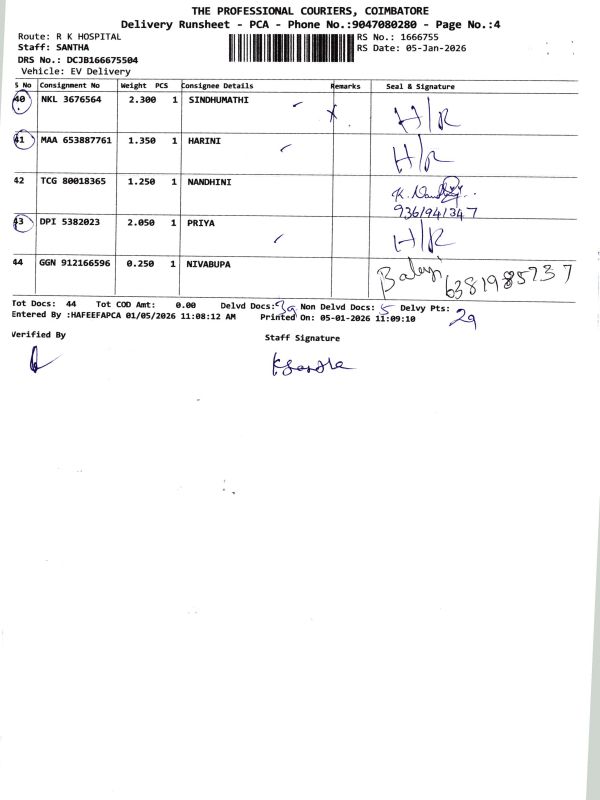 THE PROFESSIONAL COURIERS, COIMBATORE
Delivery Runsheet - PCA - Phone No.:9047080280 - Page No.:4
Route: R K HOSPITAL RS No.: 1666755
Staff: SANTHA RS Date: 05-Jan-2026
DRS No.: DCJB166675504
Vehicle: EV Delivery
S No Consignment No Weight PCS Consignee Details Remarks Seal & Signature
40 NKL 3676564 2.300 1 SINDHUMATHI H/R
41 MAA 653887761 1.350 1 HARINI H/R
42 TCG 80018365 1.250 1 NANDHINI K. Nandhi
9361941347
43 DPI 5382023 2.050 1 PRIYA H/R
44 GGN 912166596 0.250 1 NIVABUPA Balaji 6381985737
Tot Docs: 44 Tot COD Amt: 0.00 Delvd Docs: 39 Non Delvd Docs: 5 Delvy Pts: 29
Entered By :HAFEEFAPCA 01/05/2026 11:08:12 AM Printed On: 05-01-2026 11:09:10
Verified By
Staff Signature